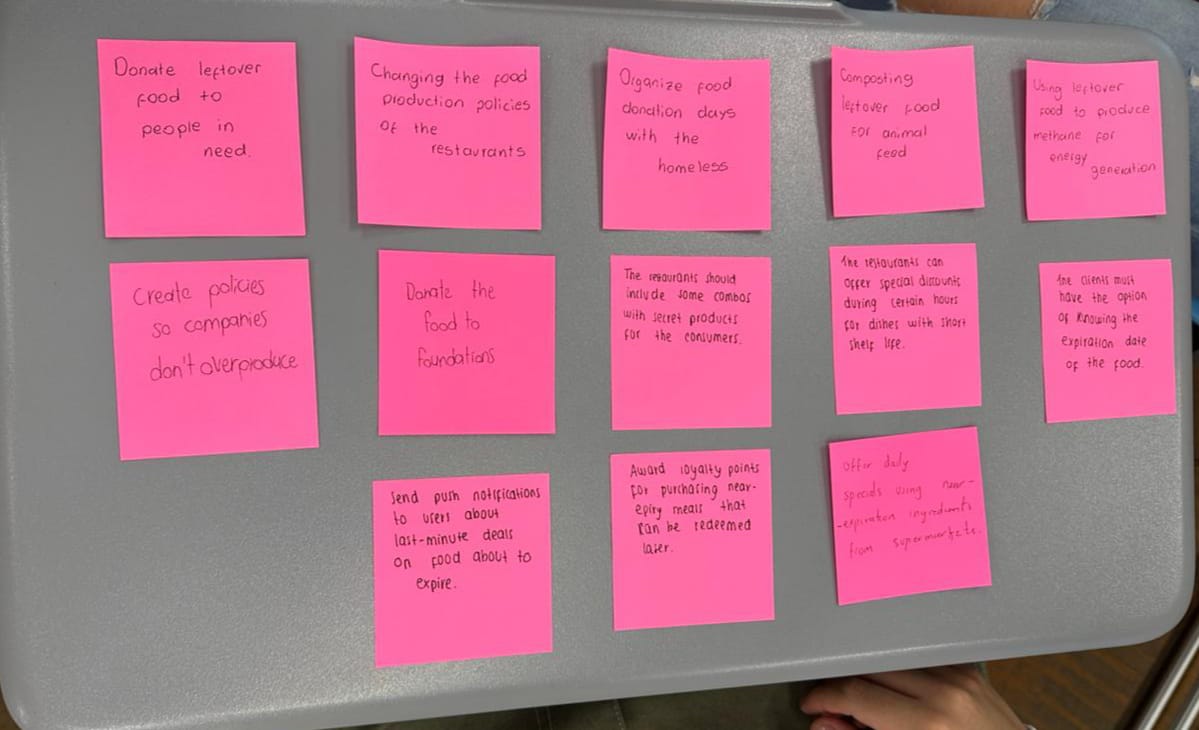 Donate leftover
food to
people in
need.
Changing the food
production policies
of the
restaurants
Organize food
donation days
with the
homeless
Composting
leftover food
for animal
feed
Using leftover
food to produce
methane for
energy
generation
Create policies
so companies
don't overproduce
Donate the
food to
foundations
The resaurants should
include some combos
with secret products
for the consumers.
The restaurants can
offer special discounts
during certain hours
for dishes with short
shelf life.
The clients must
have the option
of knowing the
expiration date
of the food.
Send push notifications
to users about
last-minute deals
on food about to
expire.
Award loyalty points
for purchasing near-
epiry meals that
can be redeemed
later.
Offer daily
specials using near-
-expiration ingredients
from supermarkets.